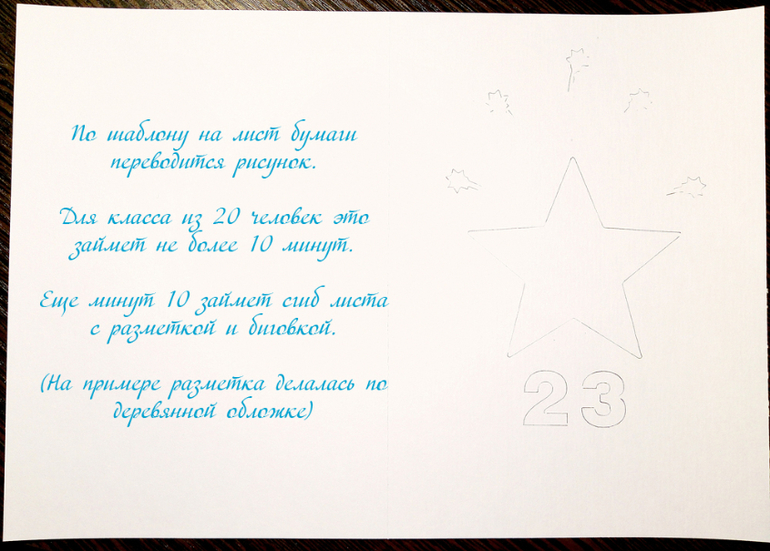 По шаблону на лист бумаги
переводится рисунок.
Для класса из 20 человек это
займет не более 10 минут.
Еще минут 10 займет сгиб листа
с разметкой и биговкой.
(На примере разметка делалась по
деревянной обложке)
23